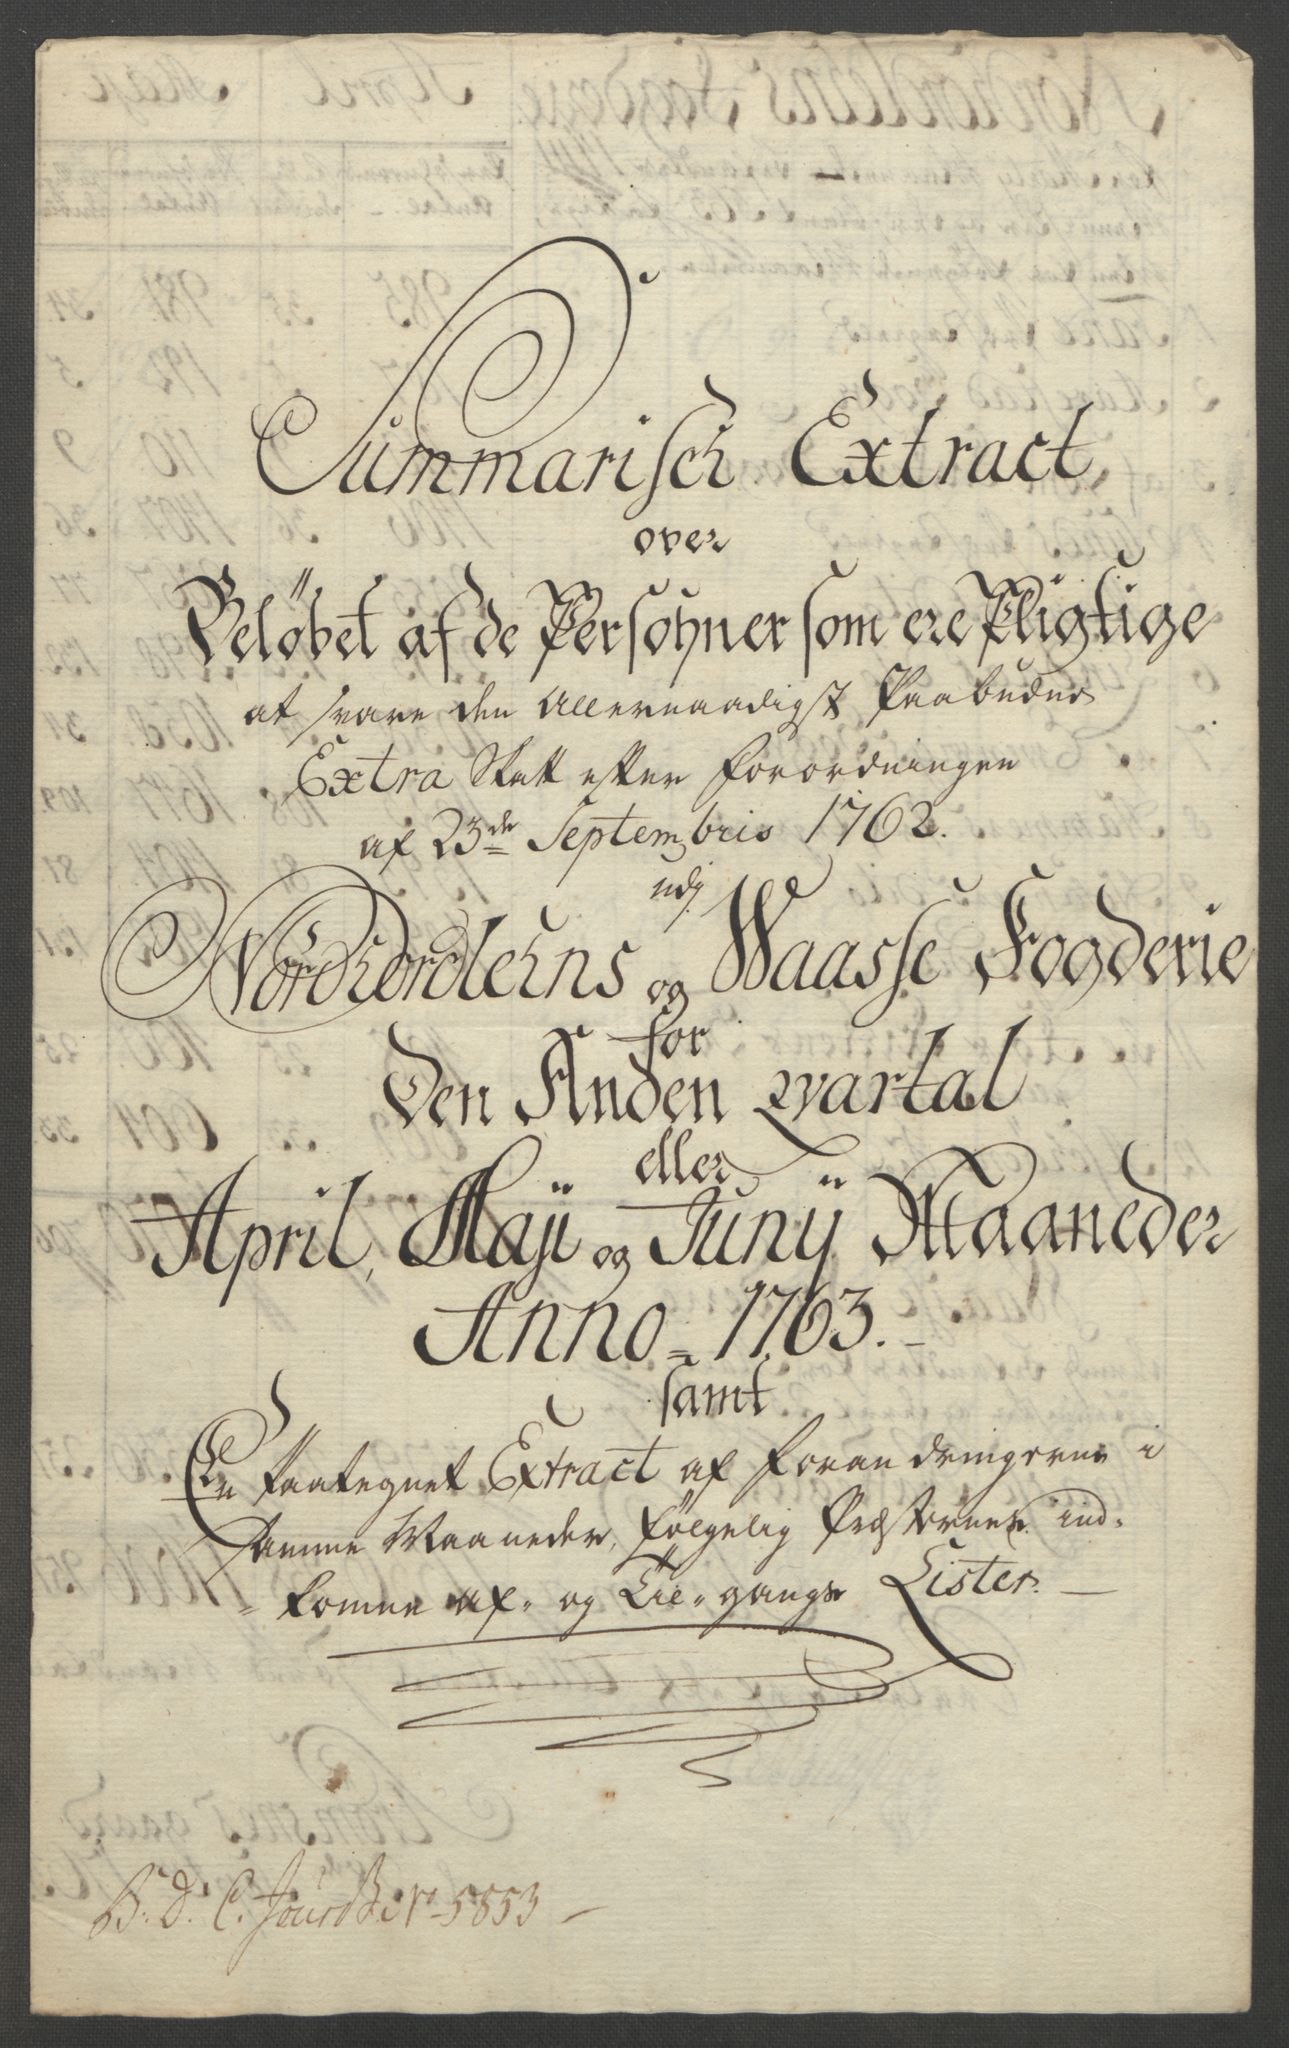 Summarisch Extract
over
Beløbet af de Persohner som ere Pligtige
at svare den Allernaadigst Paabudne
Extra Skatt efter Forordningen
af 23de Septembris 1762.
udj
Nordhordlehns og Waasse Fogderie
for
Den Anden qvartal
eller
April, Maji og Junij Maaneder
Anno = 1763. –
samt
En Paategnet Extract af Forandringerne i
samme Maaneder, følgelig Præsternes ind-
komne af- og Til-gangs Lister. —
B. D. C. Jour No 5853 –